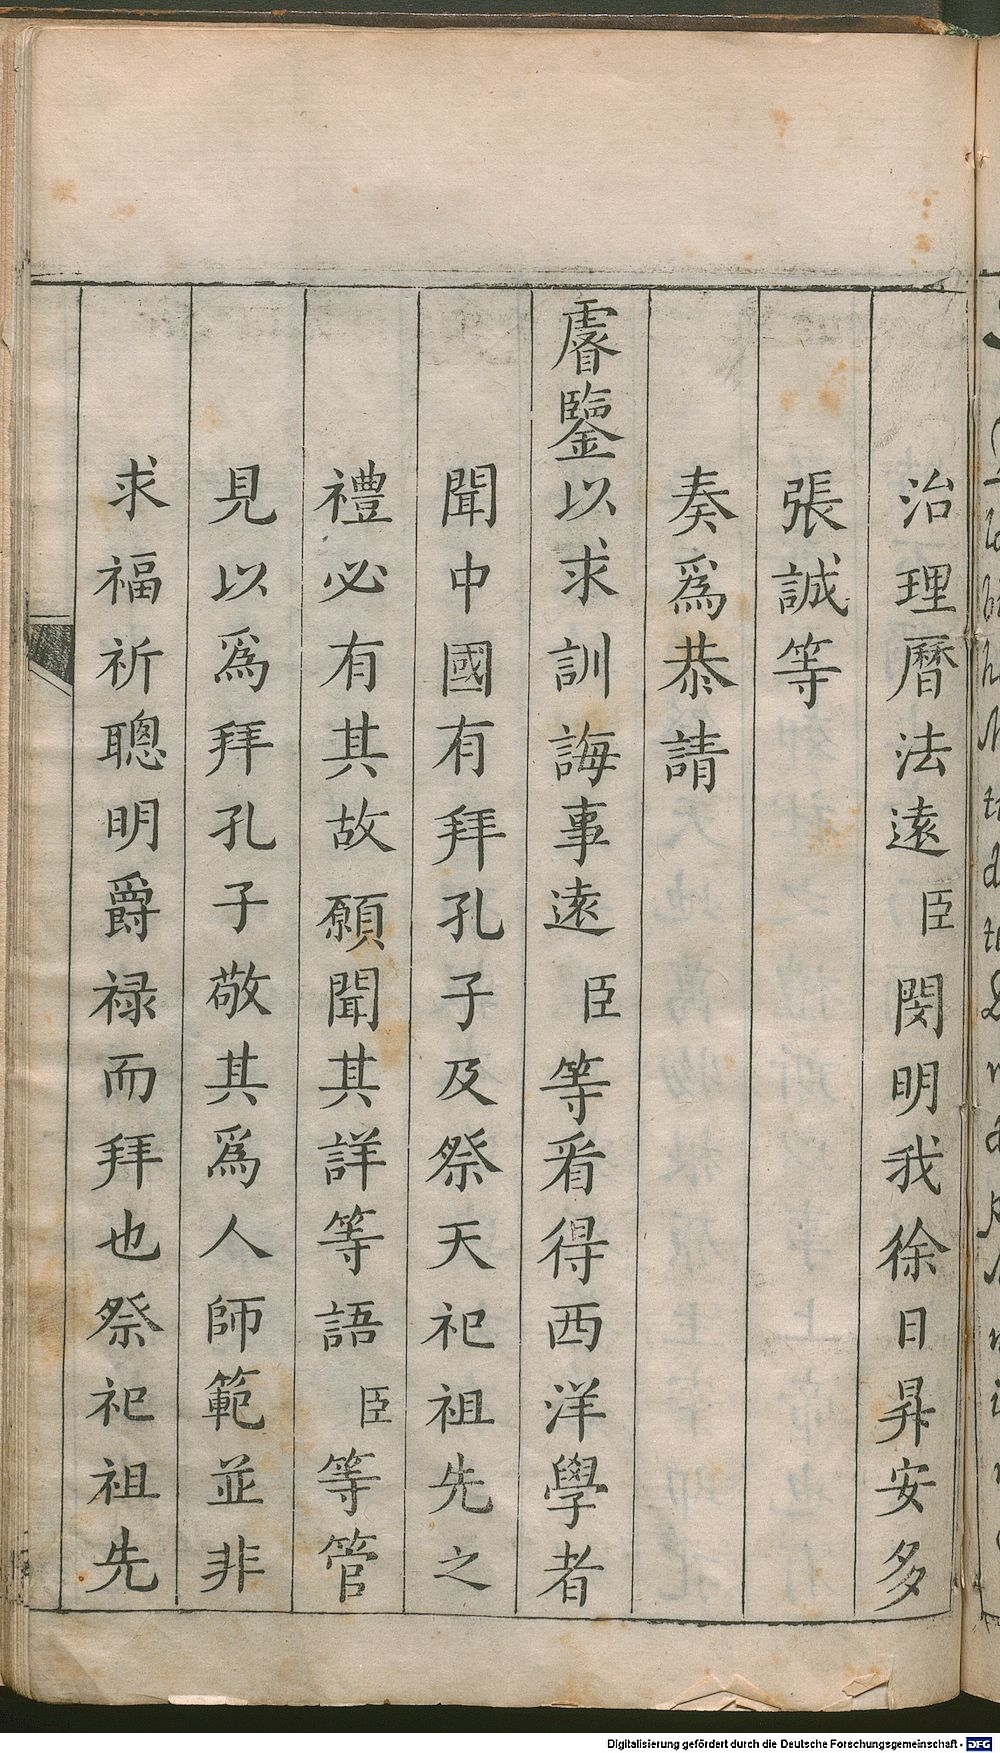 治理曆法遠臣閔明我徐日昇安多
張誠等
奏爲恭請
睿鑒以求訓誨事遠臣等看得西洋學者
聞中國有拜孔子及祭天祀祖先之
禮必有其故願聞其詳等語臣等管
見以爲拜孔子敬其爲人師範並非
求福祈聰明爵禄而拜也祭祀祖先
Digitalisierung gefördert durch die Deutsche Forschungsgemeinschaft - DFG